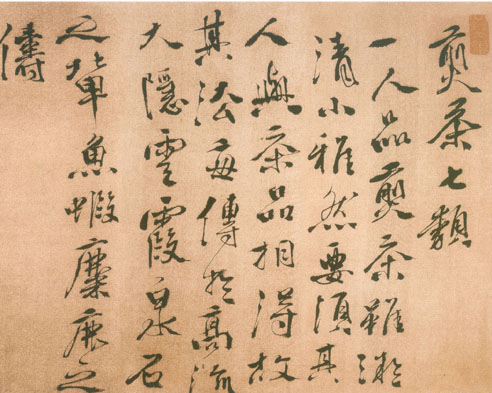 煎茶七類
一人品煎茶雖
清小雅然要須其
人與茶品相得故
其法每傳於高流
大隱雲霞泉石
之輩魚蝦麋鹿之
儔